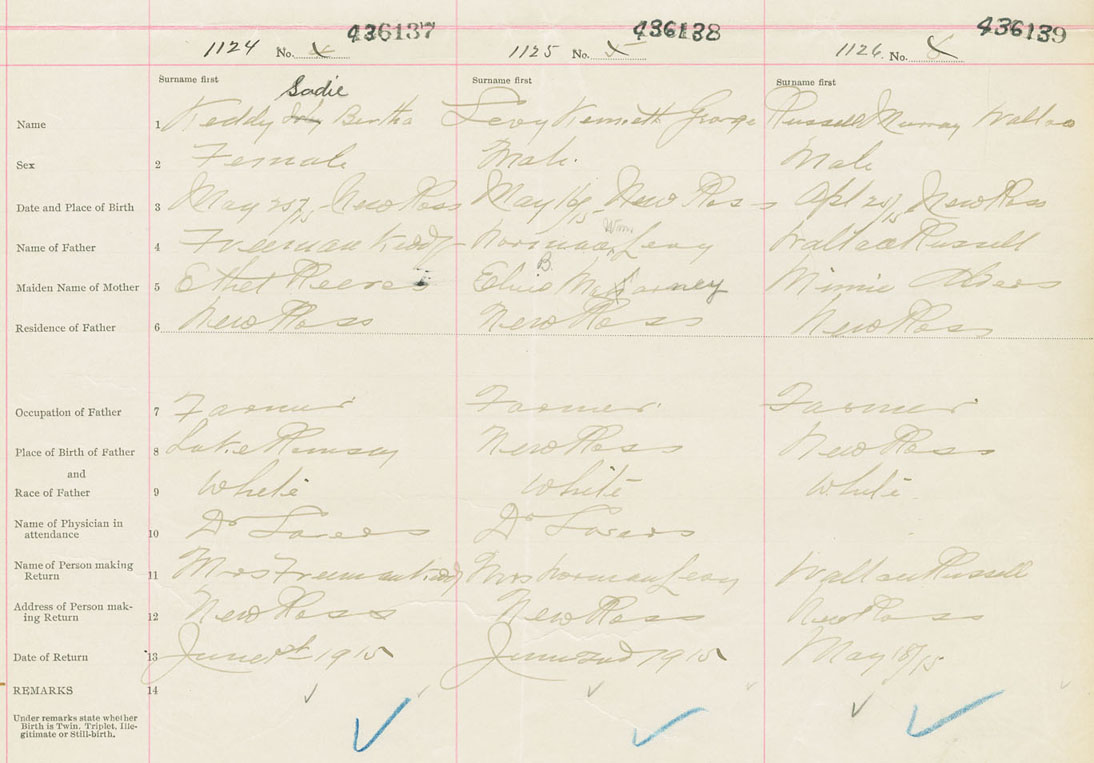 436137 436138 436139
1124 No. 1125 No. 1126 No.
Surname first Surname first Surname first
Sadie
Name 1 Keddy Bertha Levy Kenneth George Russell Murray Wallace
Sex 2 Female Male. Male
Date and Place of Birth 3 May 20/15 New Ross May 16/15 New Ross Apl 20/15 New Ross
Wm
Name of Father 4 Freeman Keddy Norman Levy Wallace Russell
B.
Maiden Name of Mother 5 Ethel Reeves Elsie Minnie
Residence of Father 6 New Ross New Ross New Ross
Occupation of Father 7 Farmer Farmer. Farmer
Place of Birth of Father 8 Lake Ramsay New Ross New Ross
and
Race of Father 9 White White White.
Name of Physician in
attendance 10 Dr Dr
Name of Person making
Return 11 Mrs Freeman Keddy Mrs Norman Levy Wallace Russell
Address of Person mak-
ing Return 12 New Ross New Ross New Ross
Date of Return 13 June 1st 1915 June 2nd 1915 May 18/15
REMARKS 14
Under remarks state whether
Birth is Twin, Triplet, Ille-
gitimate or Still-birth.